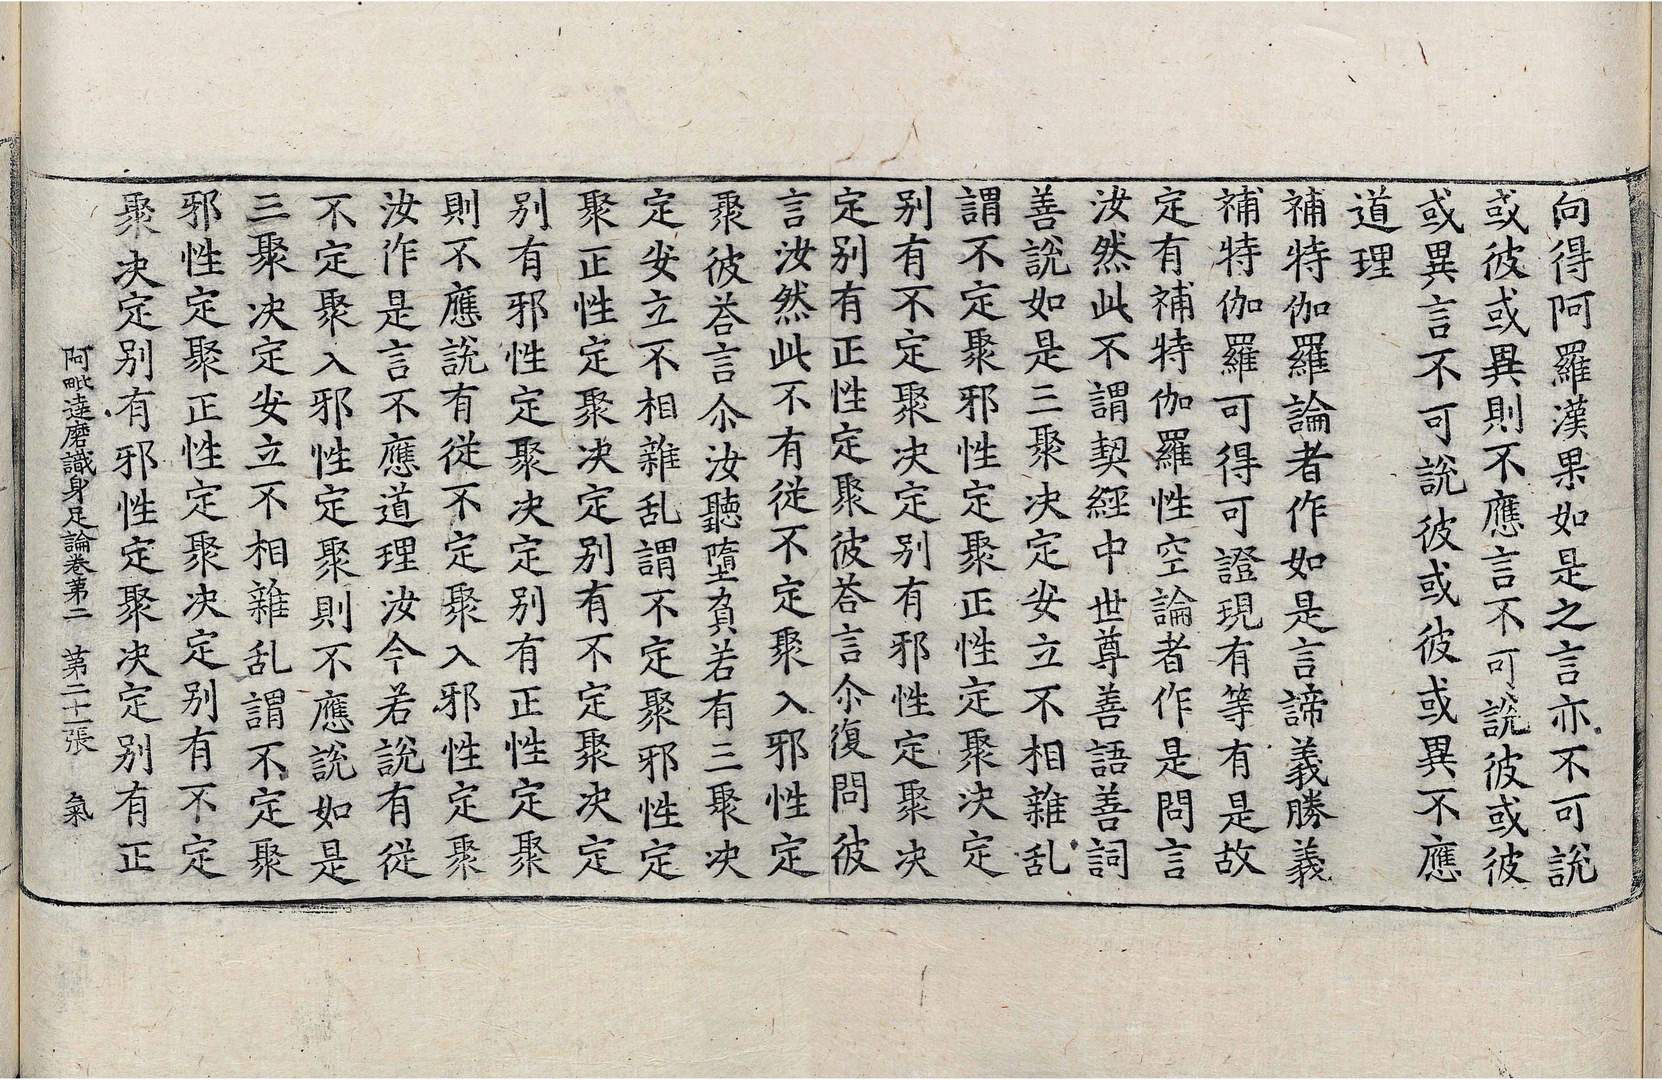 向得阿羅漢果如是之言亦不可說
或彼或異則不應言不可說彼或彼
或異言不可說彼或彼或異不應
道理
補特伽羅論者作如是言諦義勝義
補特伽羅可得可證現有等有是故
定有補特伽羅性空論者作是問言
汝然此不謂契經中世尊善語善詞
善說如是三聚决定安立不相雜乱
謂不定聚邪性定聚正性定聚决定
别有不定聚决定别有邪性定聚决
定别有正性定聚彼荅言尒復問彼
言汝然此不有從不定聚入邪性定
聚彼荅言尒汝聽墮負若有三聚决
定安立不相雜乱謂不定聚邪性定
聚正性定聚决定别有不定聚决定
别有邪性定聚决定别有正性定聚
則不應說有從不定聚入邪性定聚
汝作是言不應道理汝今若說有從
不定聚入邪性定聚則不應說如是
三聚决定安立不相雜乱謂不定聚
邪性定聚正性定聚决定别有不定
聚决定别有邪性定聚决定别有正
阿毗達磨識身足論卷第二 第二十一張 氣